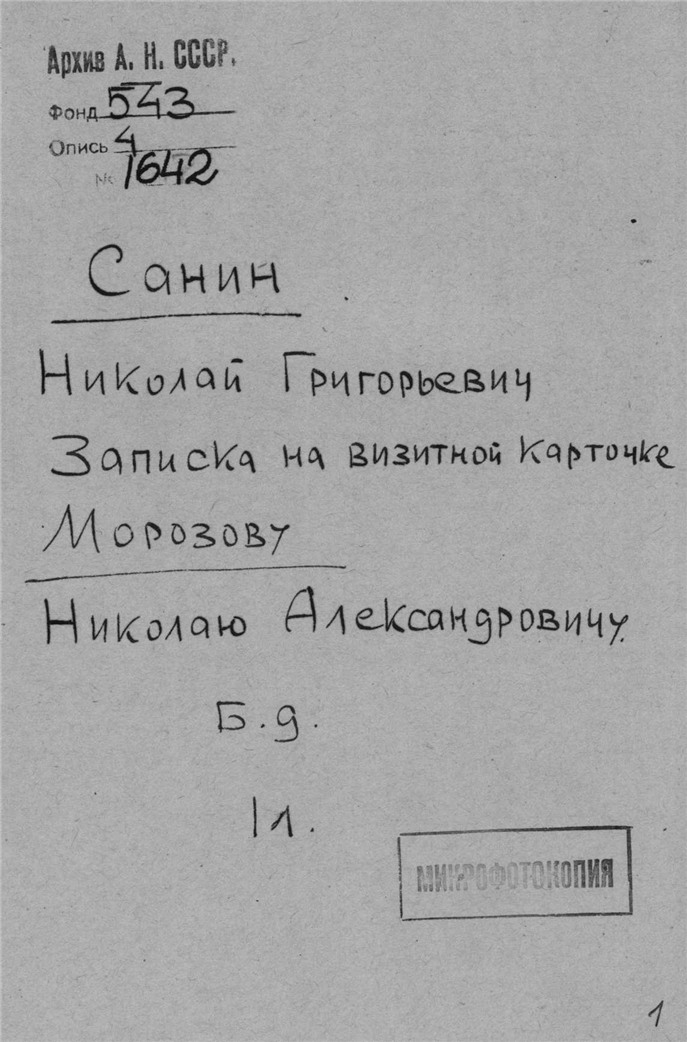 Архив А. Н. СССР.
Фонд 543
Опись 4
№ 1642
Санин
Николай Григорьевич
Записка на визитной карточке
Морозову
Николаю Александровичу.
Б. д.
1 л.
МИКРОФОТОКОПИЯ
1